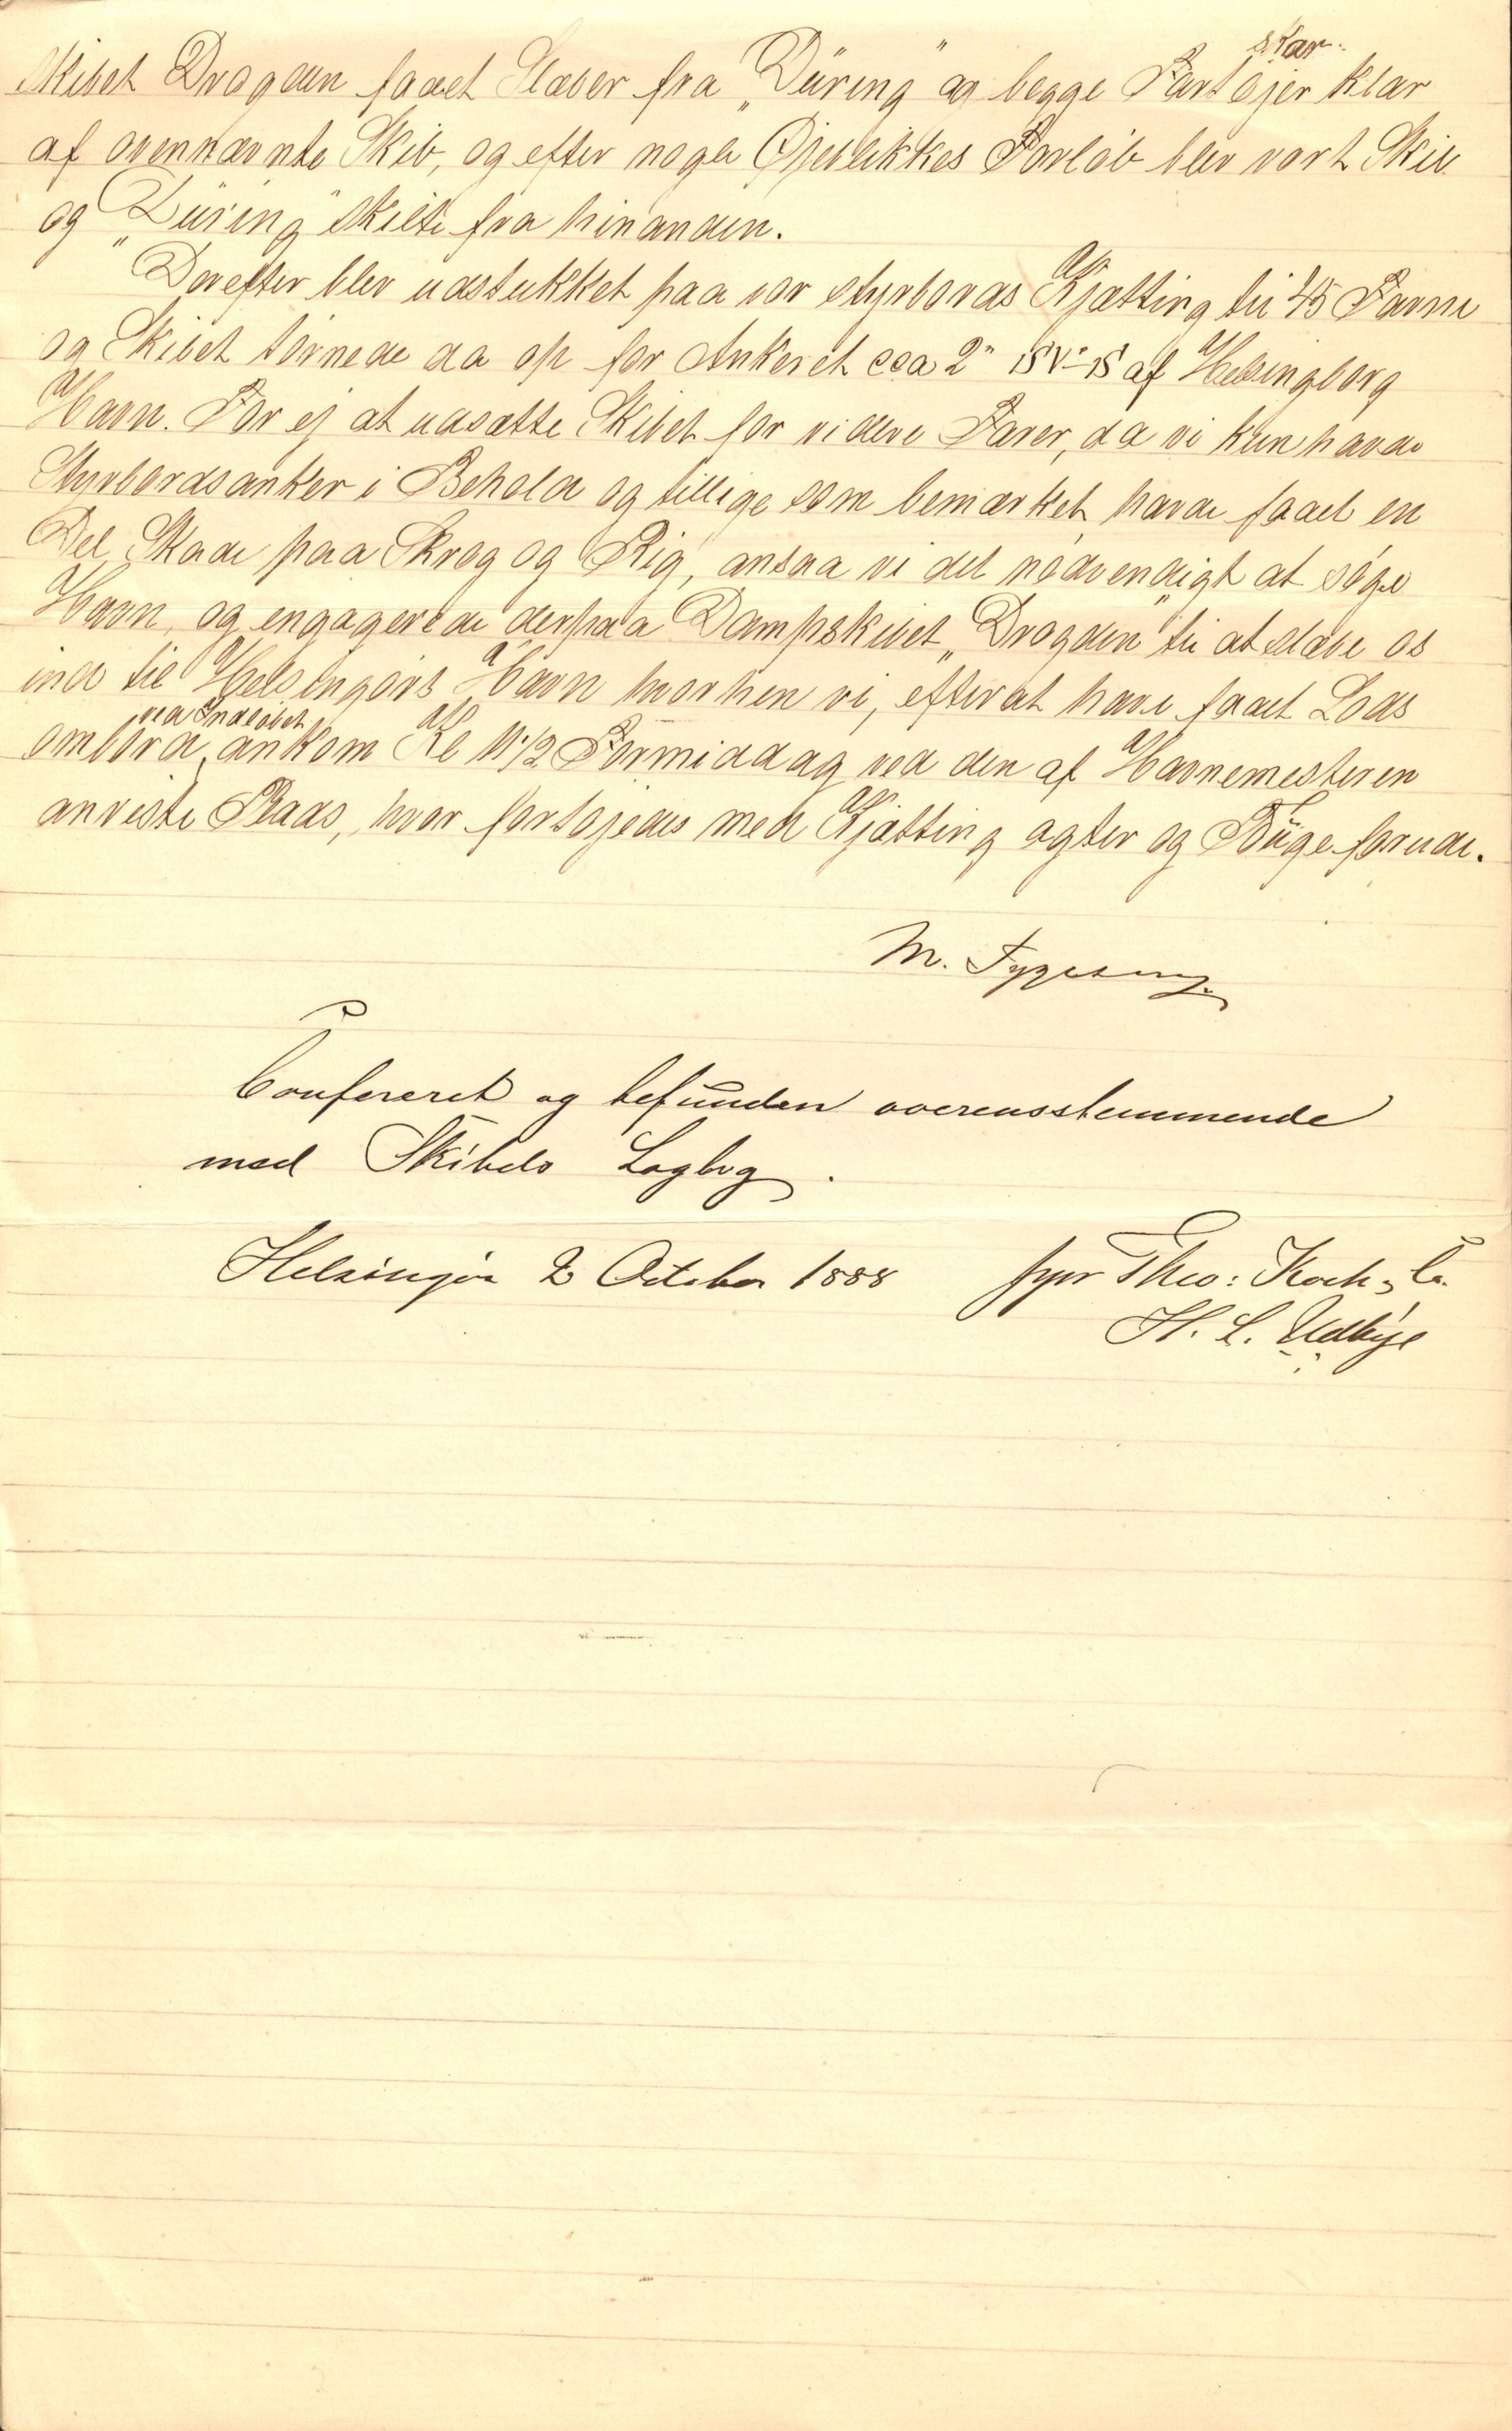 skar
skibet Drogden faaet Slæber fra „Düring" og begge Fartøjer klar
af ovennævnte Skib, og efter nogle Øjeblikkes Forløb blev vort Skib
og „Düring" skilte fra hinanden.
Derefter blev udstukket paa vor styrbords Kjætting til 45 Favne
og Skibet tørnede da op for Ankeret cca 2" af Helsingborg
Havn. For ej at udsætte Skibet for videre Farer, da vi kun havde
Styrbordsanker i Behold og tillige som bemærket havde faaet en
Del Skade paa Skrog og Rig, ansaa vi det nødvendigt at søge
Havn, og engagerede derpaa Dampskibet „Drogden" til at slæbe os
ind til Helsingørs Havn hvorhen vi, efterat have faaet Lods
ved Indløbet
ombord, ankom Kl 11 1/2 Formiddag ved den af Havnemesteren
anviste Plads, hvor fortøjedes med Kjætting agter og forude.
M. Tygesen
Confereret og befunden overensstemmende
med Skibets Logbog.
Helsingør 2 October 1888 Theo: Koch & Co.
H. L. Udbye